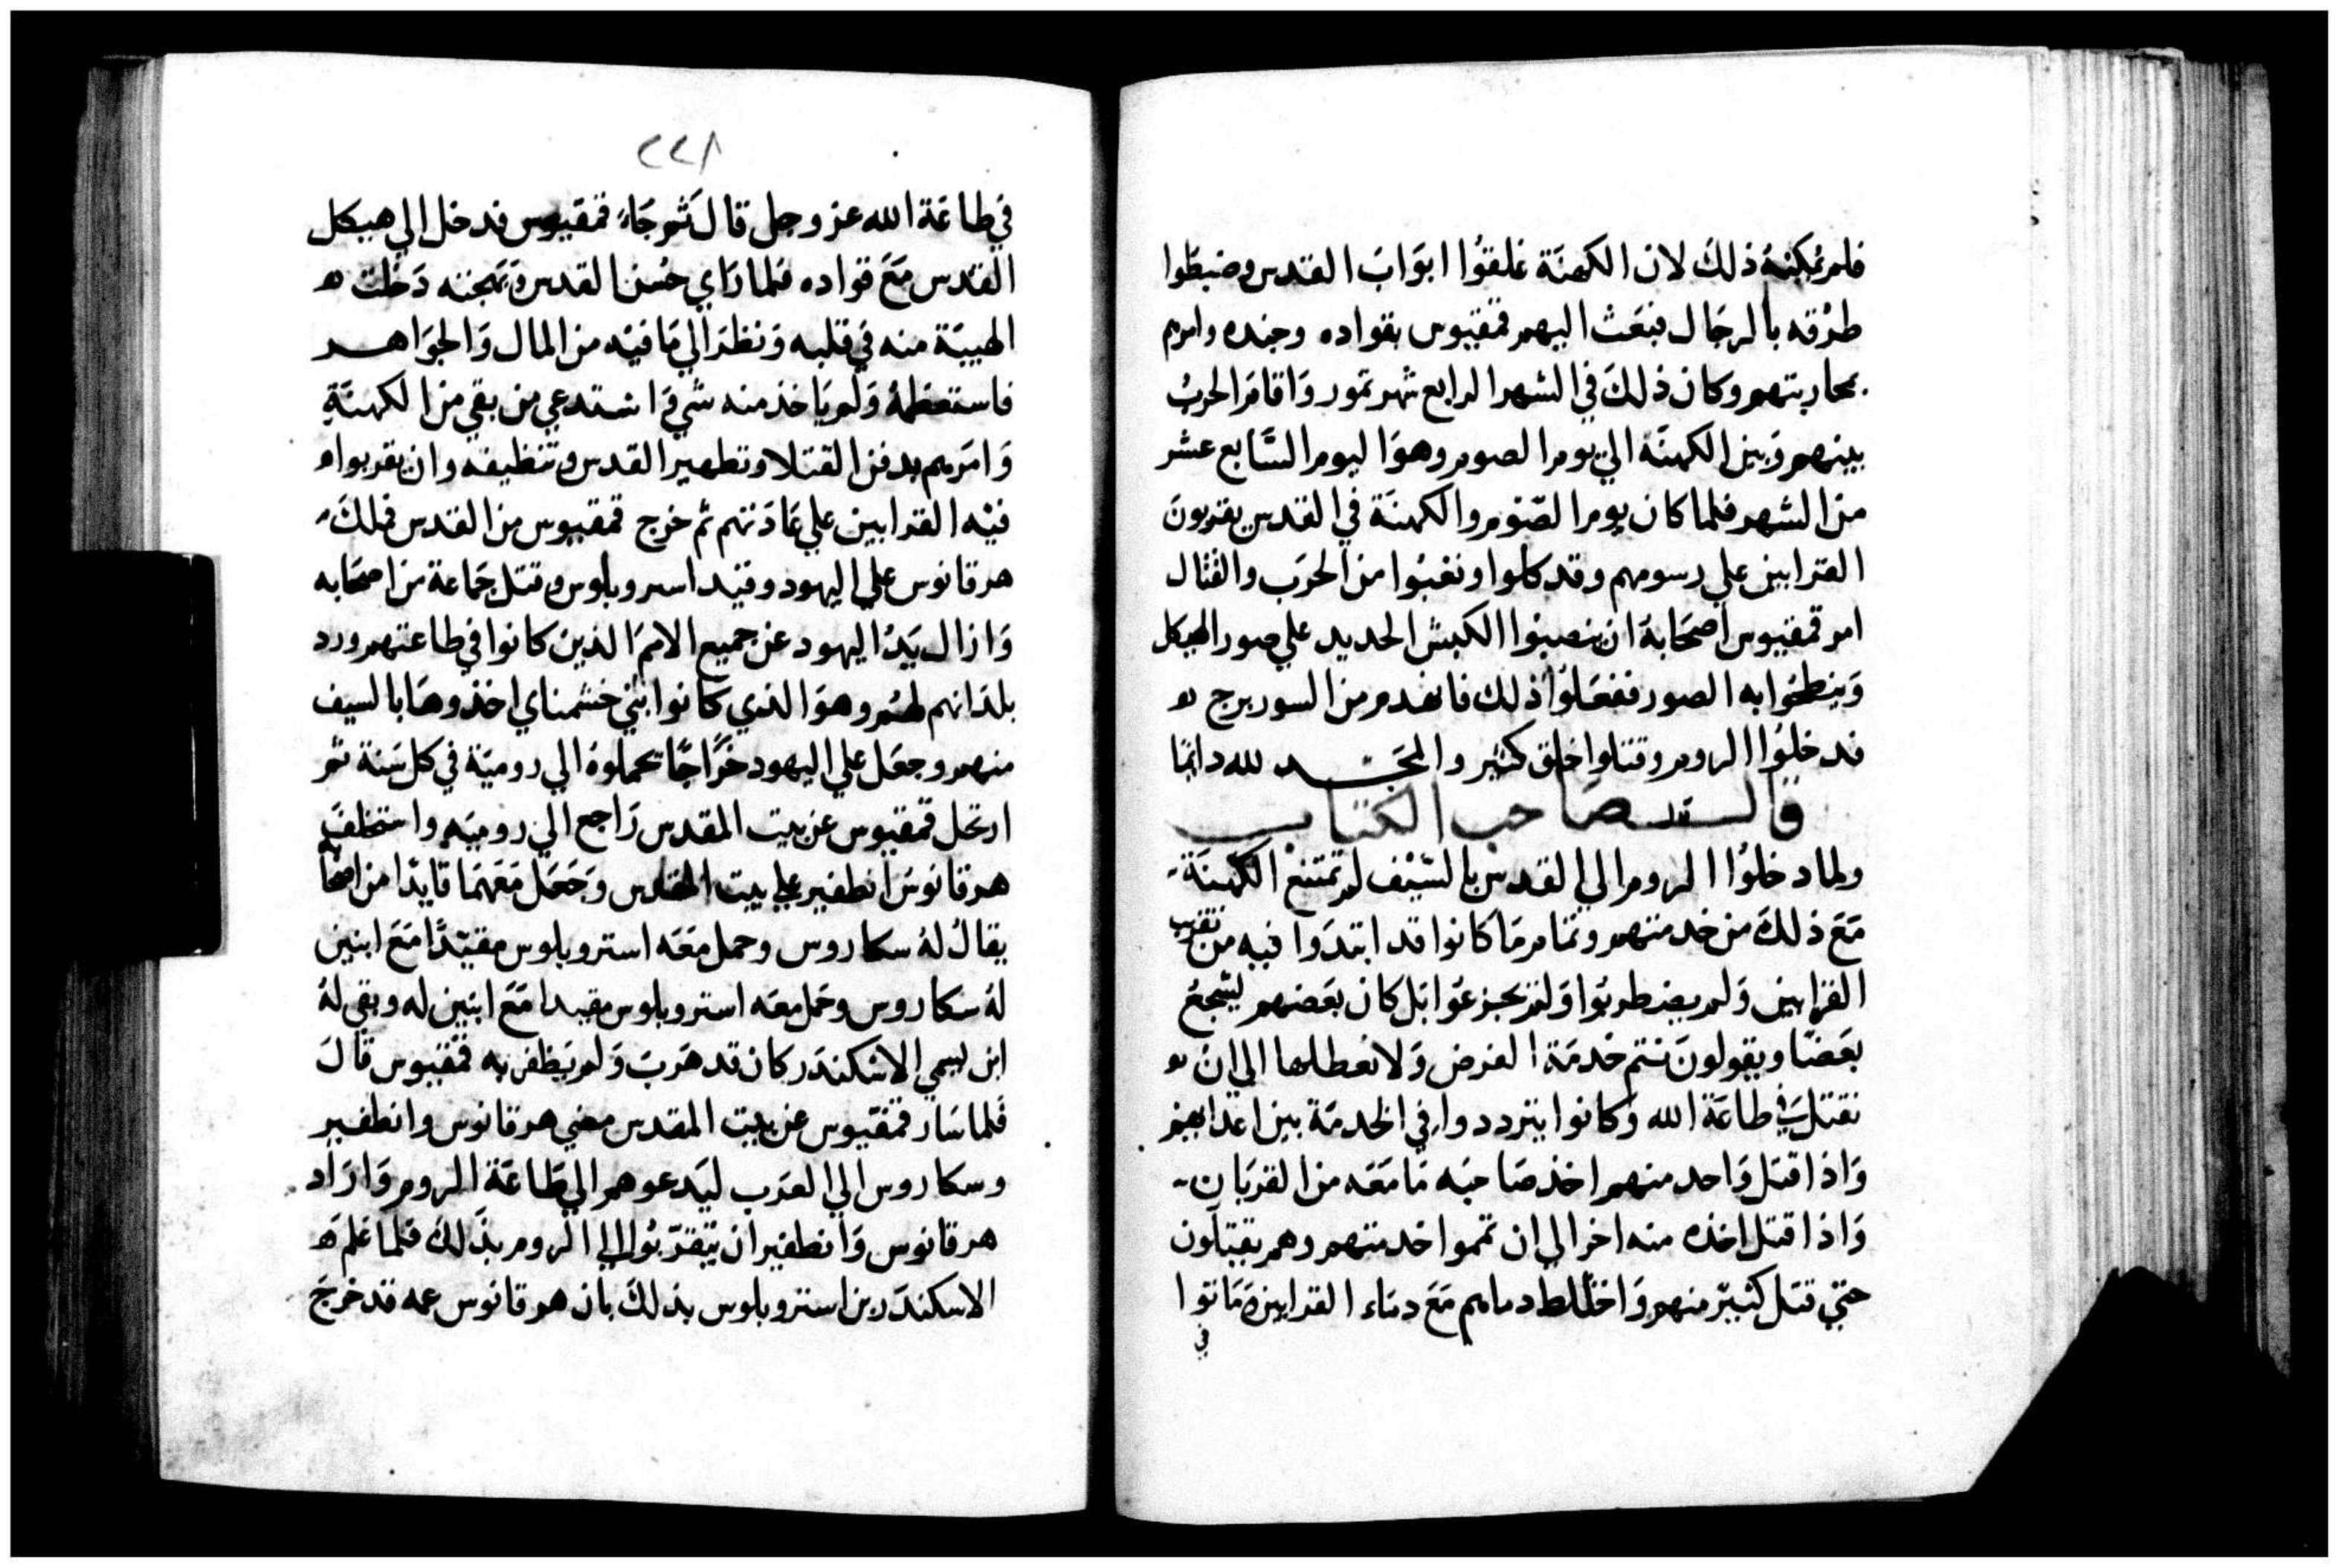 فلم يمكنه ذلك لان الكهنة غلقوا ابواب القدس وضبطوا
طرقه بالرجال فبعث اليهم قمقيوس بقواده وجنده وامرهم
بمحاربتهم وكان ذلك في الشهر الرابع شهر تموز واقام الحرب
بينهم وبين الكهنة الي يوم الصوم وهو اليوم السابع عشر
من الشهر فلما كان يوم الصوم والكهنة في القدس يقربون
القرابين علي رسومهم وقد كلوا وتغبوا من الحرب والقتال
امر قمقيوس اصحابه ان ينصبوا الكبش الحديد علي صور الهيكل
وينطحوا به الصور ففعلوا ذلك فانهدم من السور برج
فدخلوا الروم وقتلوا خلق كثير والمجد لله دائما
قال صاحب الكتاب
ولما دخلوا الروم الي القدس بالسيف لم تمتنع الكهنة
مع ذلك من خدمتهم وتمام ما كانوا قد ابتدوا فيه من تقريب
القرابين ولم يضطربوا ولم يجزعوا بل كان بعضهم يشجع
بعضا ويقولون نتم خدمة الفرض ولا نعطلها الي ان
نقتل في طاعة الله وكانوا يترددوا في الخدمة بين اعدايهم
واذا قتل واحد منهم اخذ صاحبه ما معه من القربان
واذا قتل اخذه منه اخر الي ان تمموا خدمتهم وهم يقتلون
حتي قتل كثير منهم واختلط دماهم مع دماء القرابين وماتوا
في
٢٢٨
في طاعة الله عز وجل قال ثم جاء قمقيوس فدخل الي هيكل
القدس مع قواده فلما راي حسن القدس وبهجته دخلت
الهيبة منه في قلبه ونظر الي ما فيه من المال والجواهر
فاستعظمه ولم ياخذ منه شي واستدعي من بقي من الكهنة
وامرهم بدفن القتلا وتطهير القدس وتنظيفه وان يقربوا
فيه القرابين علي عادتهم ثم خرج قمقيوس من القدس فملك
هرقانوس علي اليهود وقيد استروبلوس وقتل جماعة من اصحابه
وازال يد اليهود عن جميع الامم الذين كانوا في طاعتهم ورد
بلدانهم لهم وهو الذي كانوا بني خشمناي اخذوها بالسيف
منهم وجعل علي اليهود خراجا يحملوه الي رومية في كل سنة ثم
ارتحل قمقيوس عن بيت المقدس راجع الي روميه واستخلف
هرقانوس انطفير علي بيت المقدس وجعل معهما قايدا من اصحا
يقال له سكاروس وحمل معه استروبلوس مقيدا مع ابنين
له سكاروس وحمل معه استروبلوس مقيدا مع ابنين له وبقي له
ابن يسمي الاسكندر كان قد هرب ولم يظفر به قمقيوس قال
فلما سار قمقيوس عن بيت المقدس مضي هرقانوس وانطفير
وسكاروس الي العرب ليدعوهم الي طاعة الروم واراد
هرقانوس وانطفير ان يتقربوا الي الروم بذلك فلما علم
الاسكندر بن استروبلوس بذلك بان هرقانوس عمه قد خرج